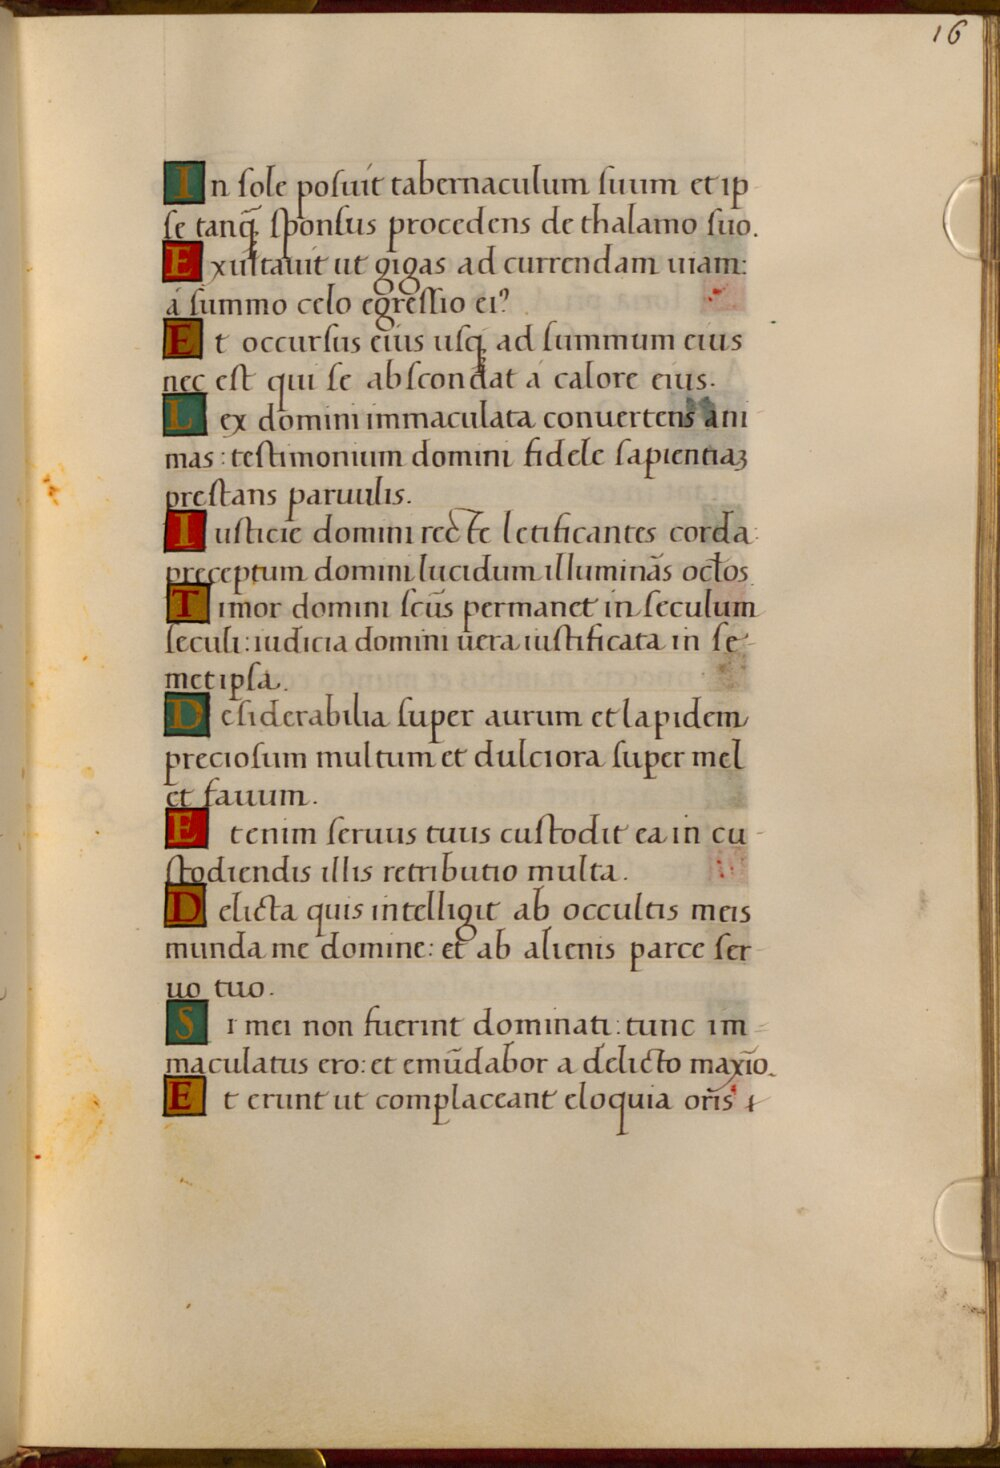 16
In sole posuit tabernaculum suum et ip
se tanq̄ sponsus procedens de thalamo suo.
Exultauit ut gigas ad currendam uiam:
a summo celo egressio ei?
Et occursus eius usq; ad summum eius
nec est qui se abscondat a calore eius.
Lex domini immaculata conuertens ani
mas: testimonium domini fidele sapientiaꝫ
prestans paruulis.
Iusticie domini recte letificantes corda:
preceptum domini lucidum illuminās oc̄l̄os
Timor domini sc̄us permanet in seculum
seculi: iudicia domini uera iustificata in se-
metipsa.
Desiderabilia super aurum et lapidem
preciosum multum et dulciora super mel
et fauum.
Etenim seruus tuus custodit ea in cu
stodiendis illis retributio multa.
Delicta quis intelligit ab occultis meis
munda me domine: et ab alienis parce ser
uo tuo.
Si mei non fuerint dominati: tunc im
maculatus ero: et emūdabor a delicto maxīo.
Et erunt ut complaceant eloquia oris